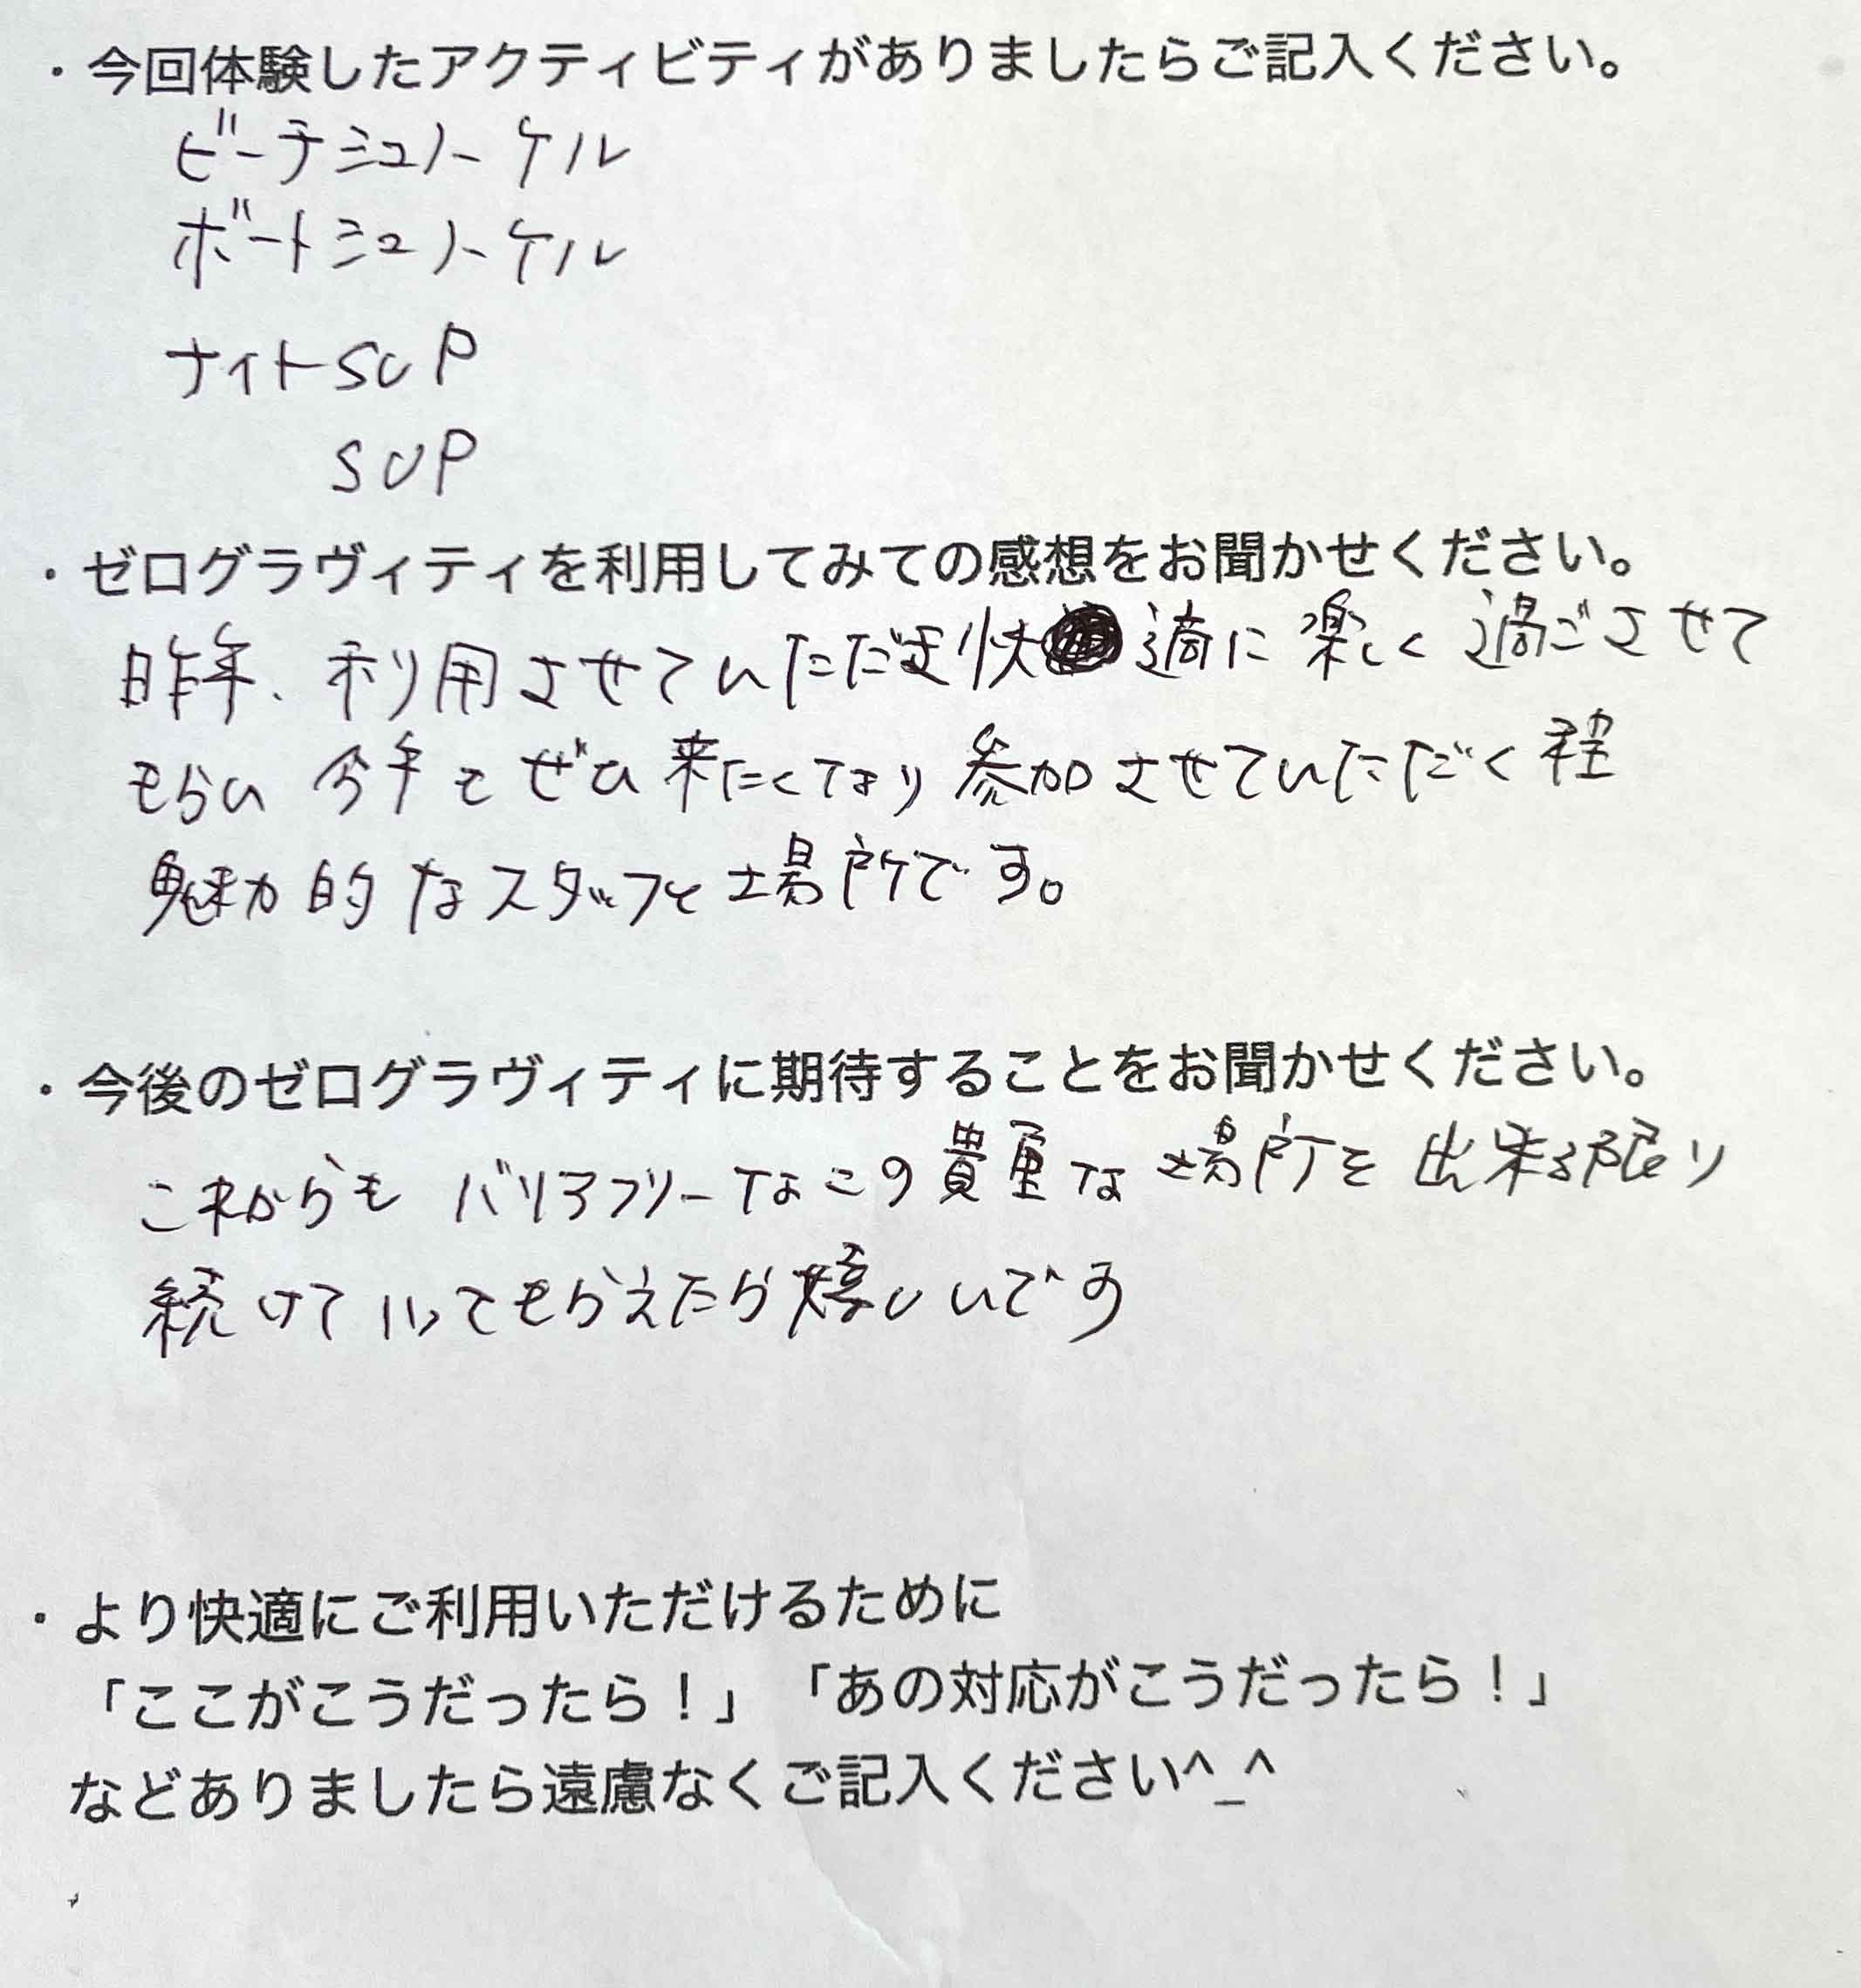 ・今回体験したアクティビティがありましたらご記入ください。
ビーチシュノーケル
ボートシュノーケル
ナイトSUP
SUP
・ゼログラヴィティを利用してみての感想をお聞かせください。
昨年、利用させていただき快適に楽しく過ごさせて
もらい今年もぜひ来たくなり参加させていただく程
魅力的なスタッフと場所です。
・今後のゼログラヴィティに期待することをお聞かせください。
これからもバリアフリーなこの貴重な場所を出来る限り
続けていってもらえたら嬉しいです
・より快適にご利用いただけるために
「ここがこうだったら！」「あの対応がこうだったら！」
などありましたら遠慮なくご記入ください^_^